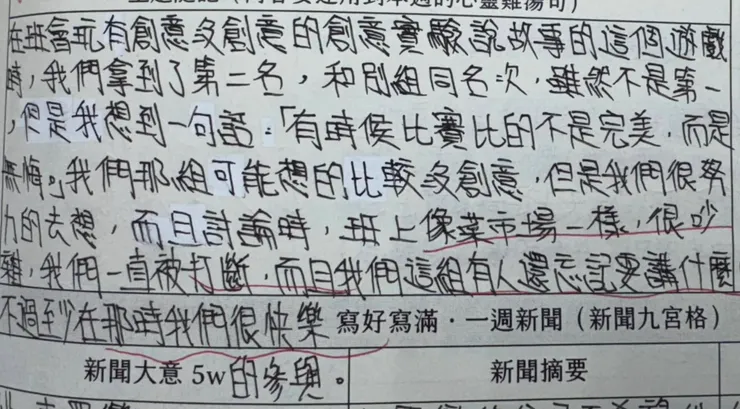 在班會玩有創意沒創意的創意實驗說故事的這個遊戲
時，我們拿到了第二名，和別組同名次，雖然不是第一
，但是我想到一句話：「有時候比賽比的不是完美，而是
無悔。」我們那組可能想的比較沒創意，但是我們很努
力的去想，而且討論時，班上像菜市場一樣，很吵
雜，我們一直被打斷，而且我們這組有人還忘記要講什麼
不過至少在那時我們很快樂 寫好寫滿・一週新聞（新聞九宮格）
新聞大意 5w的參與。 新聞摘要